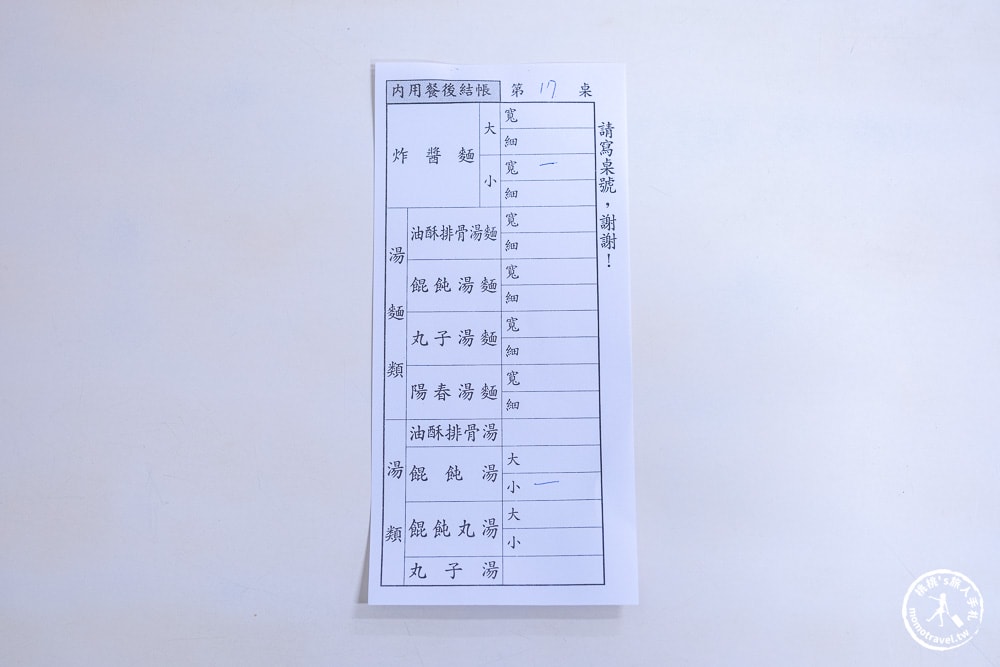 內用餐後結帳 第 17 桌
炸醬麵
大
寬
細
小
寬 一
細
湯麵類
油酥排骨湯麵
寬
細
餛飩湯麵
寬
細
丸子湯麵
寬
細
陽春湯麵
寬
細
湯類
油酥排骨湯
餛飩湯
大
小 一
餛飩丸湯
大
小
丸子湯
請寫桌號，謝謝！
桃桃's旅人手札
momotravel.tw